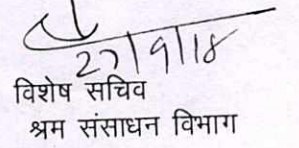 27/9/18
विशेष सचिव
श्रम संसाधन विभाग